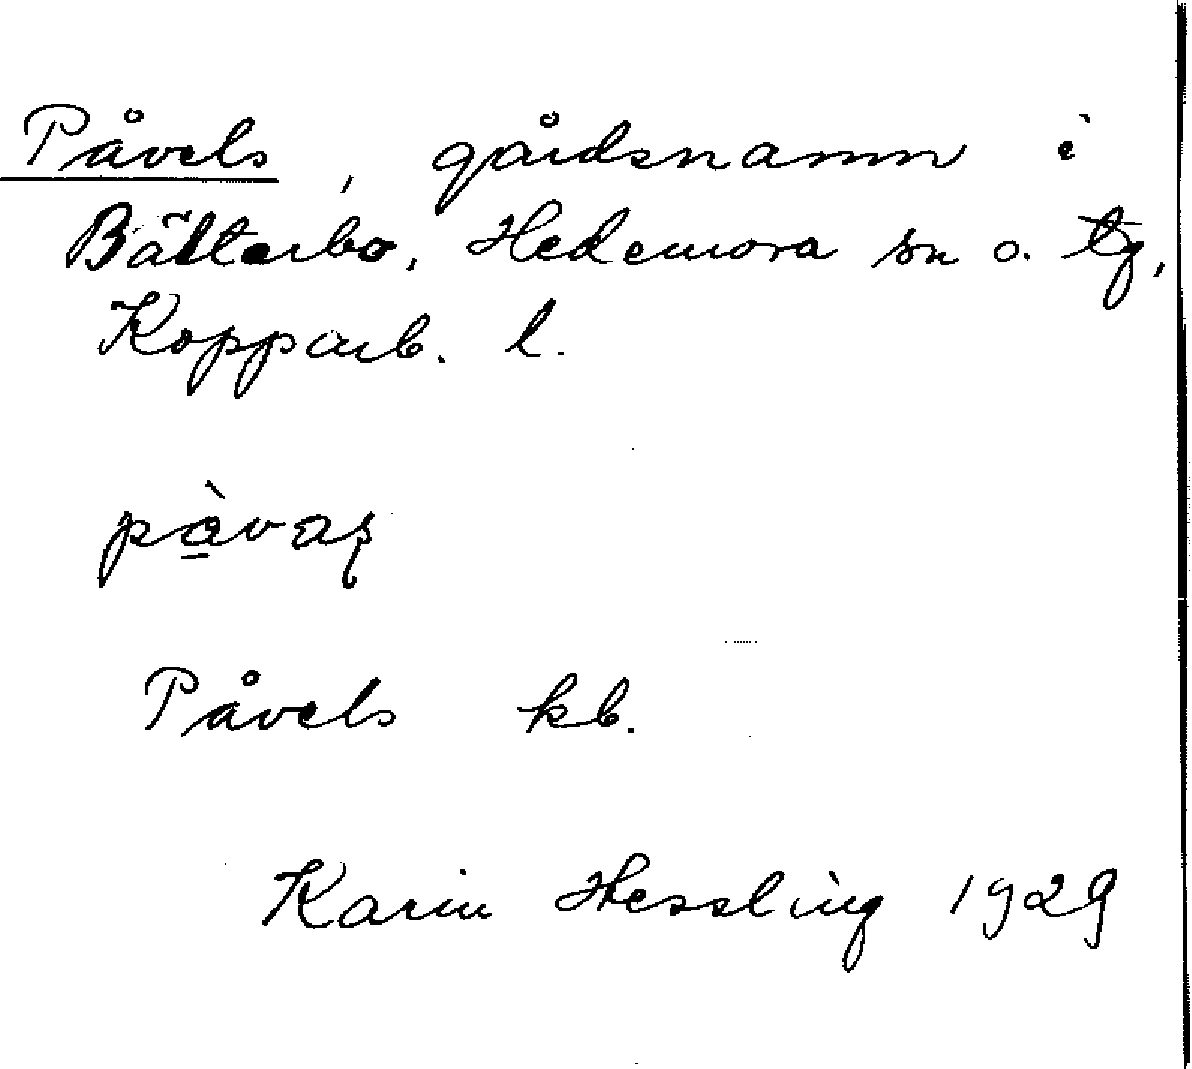 Påvels, gårdsnamn i
Bälterbo, Hedemora sn o. tg,
Kopparb. l.
Påvels kb.
Karin Hessling 1929